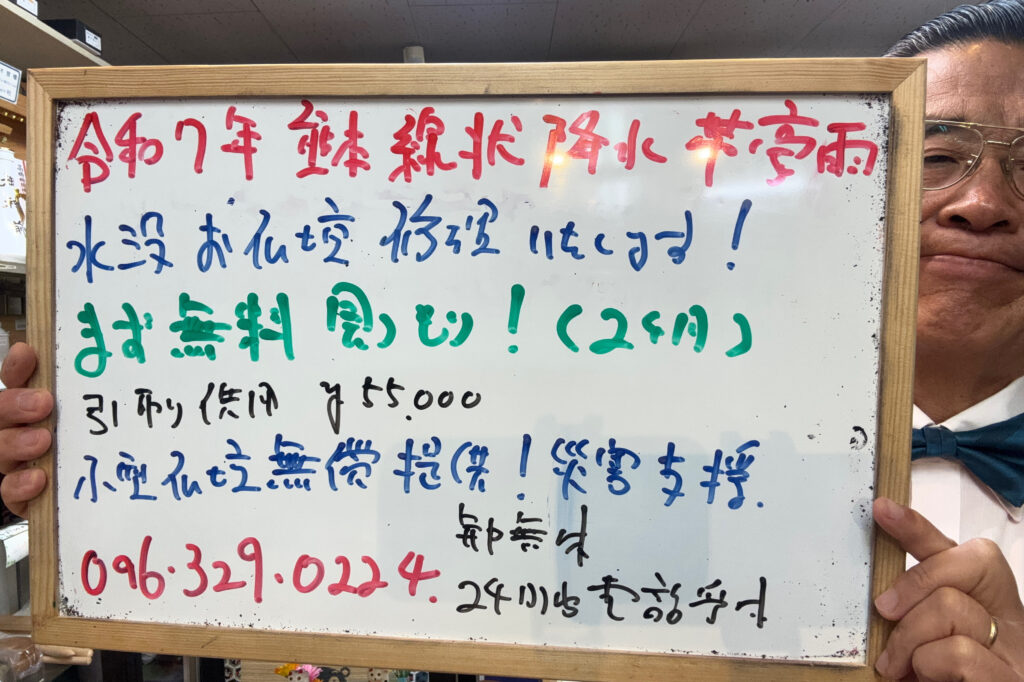 令和7年 熊本 線状降水帯豪雨
水没お仏壇 修理いたします!
まず無料見つもり!(24月)
引取り費用 ¥55,000
小型仏壇無償提供!災害支援.
年中無休
096.329.0224.
24時間電話受付